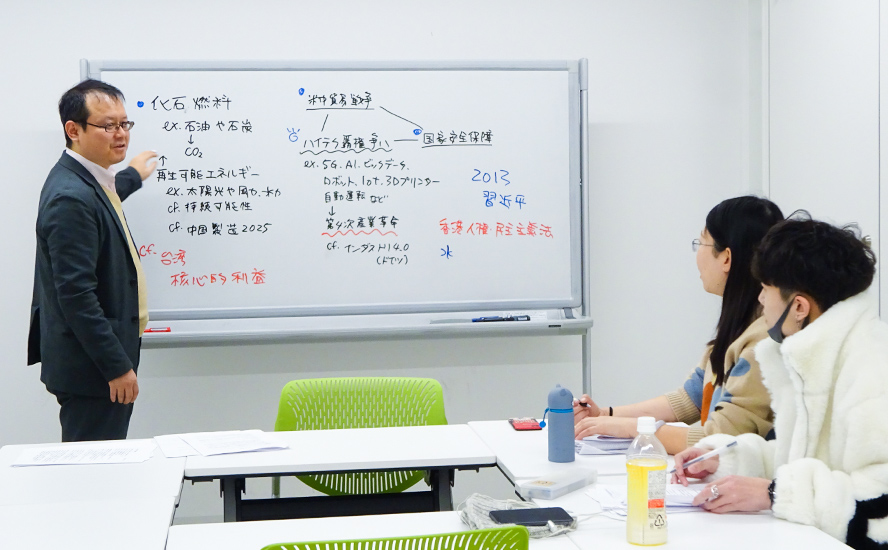 化石燃料
ex. 石油や石炭
↓
CO₂
↑
再生可能エネルギー
ex. 太陽光や風力、水力
cf. 持続可能性
cf. 中国製造2025
cf. 台湾
核心的利益
米中貿易戦争
ハイテク覇権争い
国家安全保障
ex. 5G、AI、ビッグデータ、
ロボット、IoT、3Dプリンター
自動運転など
↓
第4次産業革命
cf. インダストリ4.0
(ドイツ)
2013
習近平
香港人権・民主主義法
水